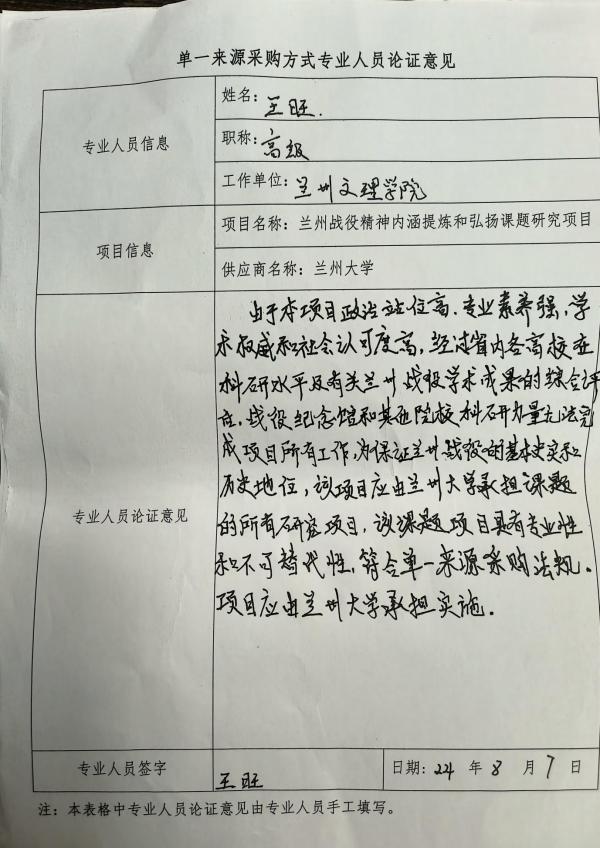 单一来源采购方式专业人员论证意见
专业人员信息
姓名：王旺.
职称：高级
工作单位：兰州文理学院
项目信息
项目名称：兰州战役精神内涵提炼和弘扬课题研究项目
供应商名称：兰州大学
专业人员论证意见
由于本项目政治站位高、专业素养强，学
术权威和社会认可度高，经过省内各高校在
科研水平及有关兰州战役学术成果的综合评
应，战役纪念馆和其他院校科研力量无法完
成项目所有工作，为保证兰州战役的基本史实和
历史地位，该项目应由兰州大学承担课题
的所有研究项目，该课题项目具有专业性
和不可替代性，符合单一来源采购法规。
项目应由兰州大学承担实施。
专业人员签字
王旺
日期：24 年 8 月 7 日
注：本表格中专业人员论证意见由专业人员手工填写。